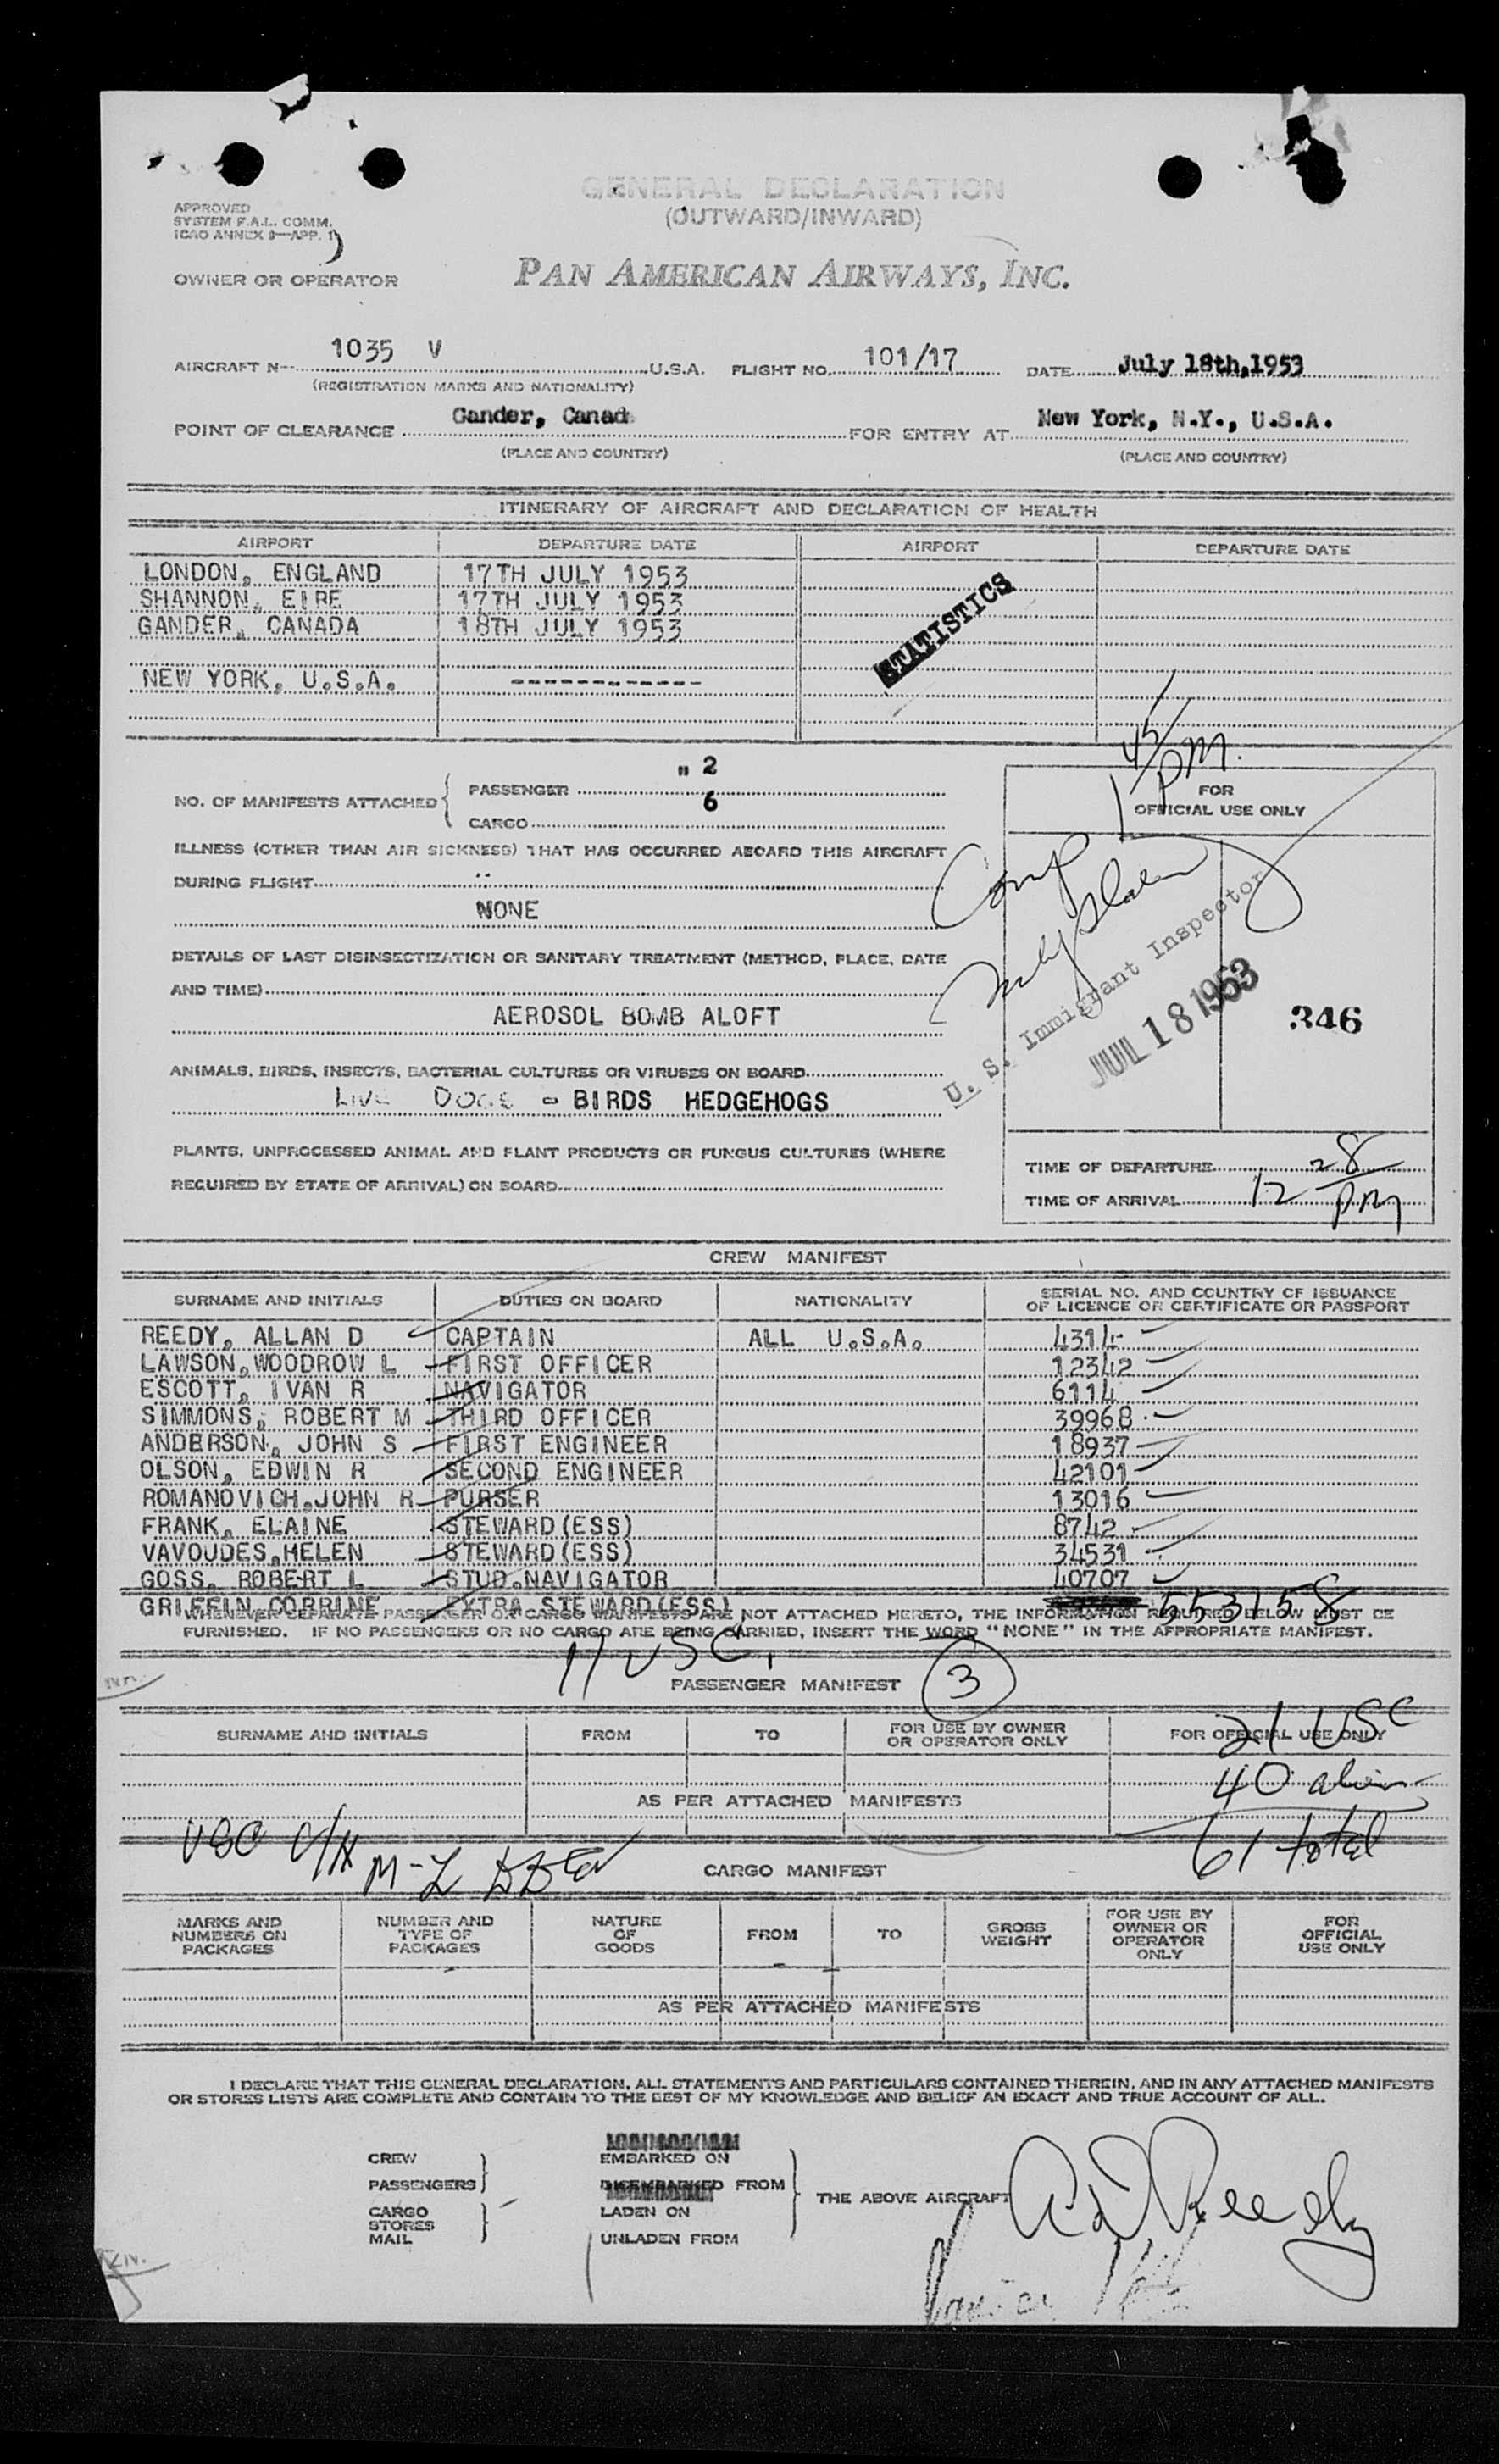 GENERAL DECLARATION
(OUTWARD/INWARD)
APPROVED
SYSTEM F.A.L. COMM.
ICAO ANNEX 9—APP. 1
OWNER OR OPERATOR
PAN AMERICAN AIRWAYS, INC.
AIRCRAFT N-- 1035 V U.S.A. FLIGHT NO. 101/17 DATE July 18th,1953
(REGISTRATION MARKS AND NATIONALITY)
POINT OF CLEARANCE Gander, Canad FOR ENTRY AT New York, N.Y., U.S.A.
(PLACE AND COUNTRY) (PLACE AND COUNTRY)
ITINERARY OF AIRCRAFT AND DECLARATION OF HEALTH
AIRPORT DEPARTURE DATE AIRPORT DEPARTURE DATE
LONDON, ENGLAND 17TH JULY 1953
SHANNON, EIRE 17TH JULY 1953
GANDER, CANADA 18TH JULY 1953
STATISTICS
NEW YORK, U.S.A. ------------
1 45/PM.
NO. OF MANIFESTS ATTACHED { PASSENGER " 2
CARGO 6
FOR
OFFICIAL USE ONLY
ILLNESS (OTHER THAN AIR SICKNESS) THAT HAS OCCURRED ABOARD THIS AIRCRAFT
DURING FLIGHT
NONE
DETAILS OF LAST DISINSECTIZATION OR SANITARY TREATMENT (METHOD, PLACE, DATE
AND TIME)
AEROSOL BOMB ALOFT
Comp
U. S. Immigrant Inspector
JUL 18 1953
346
ANIMALS, BIRDS, INSECTS, BACTERIAL CULTURES OR VIRUSES ON BOARD
LIVE DOGS - BIRDS HEDGEHOGS
PLANTS, UNPROCESSED ANIMAL AND PLANT PRODUCTS OR FUNGUS CULTURES (WHERE
REQUIRED BY STATE OF ARRIVAL) ON BOARD
TIME OF DEPARTURE
TIME OF ARRIVAL 12 28/PM
CREW MANIFEST
SURNAME AND INITIALS DUTIES ON BOARD NATIONALITY SERIAL NO. AND COUNTRY OF ISSUANCE
OF LICENCE OR CERTIFICATE OR PASSPORT
REEDY, ALLAN D CAPTAIN ALL U.S.A. 4314
LAWSON,WOODROW L FIRST OFFICER 12342
ESCOTT, IVAN R NAVIGATOR 6114
SIMMONS, ROBERT M THIRD OFFICER 39968
ANDERSON, JOHN S FIRST ENGINEER 18937
OLSON, EDWIN R SECOND ENGINEER 42101
ROMANOVICH,JOHN R PURSER 13016
FRANK, ELAINE STEWARD(ESS) 8742
VAVOUDES,HELEN STEWARD(ESS) 34531
GOSS, ROBERT L STUD.NAVIGATOR 40707
GRIFFIN CORRINE EXTRA STEWARD(ESS) 553158
WHENEVER SEPARATE PASSENGER OR CARGO MANIFESTS ARE NOT ATTACHED HERETO, THE INFORMATION REQUIRED BELOW MUST BE
FURNISHED. IF NO PASSENGERS OR NO CARGO ARE BEING CARRIED, INSERT THE WORD "NONE" IN THE APPROPRIATE MANIFEST.
11 USC.
PASSENGER MANIFEST 3
SURNAME AND INITIALS FROM TO FOR USE BY OWNER
OR OPERATOR ONLY FOR OFFICIAL USE ONLY
21 USC
40 alien
AS PER ATTACHED MANIFESTS
61 total
CARGO MANIFEST
MARKS AND
NUMBERS ON
PACKAGES NUMBER AND
TYPE OF
PACKAGES NATURE
OF
GOODS FROM TO GROSS
WEIGHT FOR USE BY
OWNER OR
OPERATOR
ONLY FOR
OFFICIAL
USE ONLY
AS PER ATTACHED MANIFESTS
I DECLARE THAT THIS GENERAL DECLARATION, ALL STATEMENTS AND PARTICULARS CONTAINED THEREIN, AND IN ANY ATTACHED MANIFESTS
OR STORES LISTS ARE COMPLETE AND CONTAIN TO THE BEST OF MY KNOWLEDGE AND BELIEF AN EXACT AND TRUE ACCOUNT OF ALL.
CREW EMBARKED ON
PASSENGERS DISEMBARKED FROM
THE ABOVE AIRCRAFT A D Reedy
CARGO LADEN ON
STORES
MAIL UNLADEN FROM